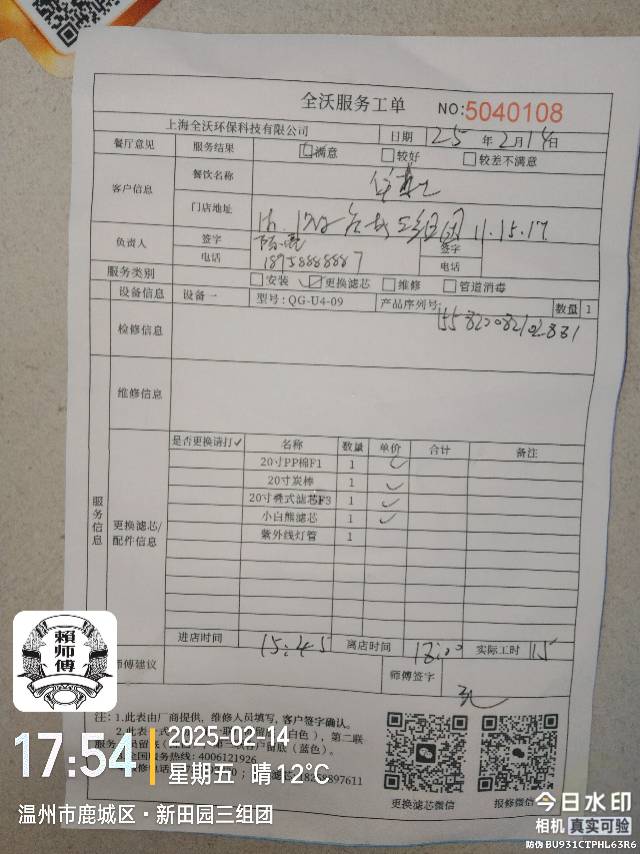 全沃服务工单 NO:5040108
上海全沃环保科技有限公司 日期 25 年 2 月 14 日
餐厅意见 服务结果 满意 较好 较差不满意
客户信息 餐饮名称
门店地址 11.15.17
负责人 签字 签字
电话 电话
服务类别 安装 更换滤芯 维修 管道消毒
设备信息 设备一 型号:QG-U4-09 产品序列号: 数量 1
检修信息
维修信息
服务信息
更换滤芯/配件信息
是否更换请打✓ 名称 数量 单价 合计 备注
20寸PP棉F1 1 ✓
20寸炭棒 1 ✓
20寸叠式滤芯F3 1 ✓
小白熊滤芯 1 ✓
紫外线灯管 1
进店时间 15:45 离店时间 18:00 实际工时
师傅建议 师傅签字
注:1.此表由厂商提供,维修人员填写,客户签字确认。
更换滤芯微信 报修微信
賴师傅
17:54
2025-02-14
星期五 晴 12℃
温州市鹿城区·新田园三组团
今日水印
相机 真实可验
防伪 BU931CTPHL63R6